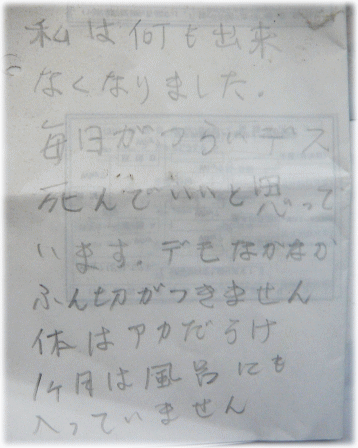 私は何も出来
なくなりました。
毎日がつらいデス
死んでいいと思って
います。デモなかなか
ふん切がつきません
体はアカだらけ
1ヶ月は風呂にも
入っていません